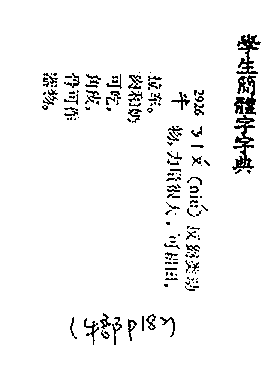 學生簡體字字典
2926 ㄋㄧㄡˊ (niú) 反刍类动
牛 物，力气很大，可耕田，
拉车。
肉和奶
可吃，
角皮，
骨可作
器物。
(牛部P182)